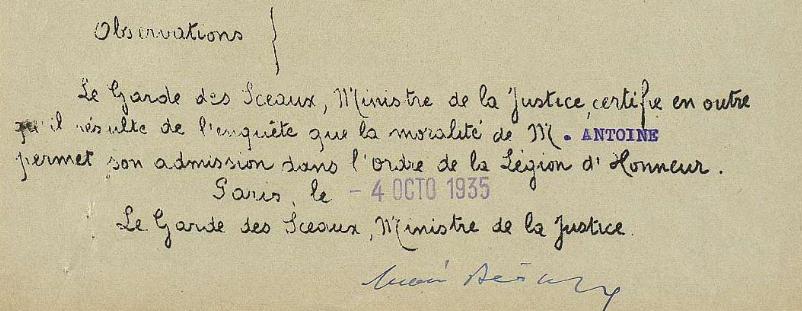 Observations
Le Garde des Sceaux, Ministre de la Justice, certifie en outre
qu'il résulte de l'enquête que la moralité de M. ANTOINE
permet son admission dans l'ordre de la Légion d'Honneur.
Paris, le - 4 OCTO 1935
Le Garde des Sceaux, Ministre de la Justice.